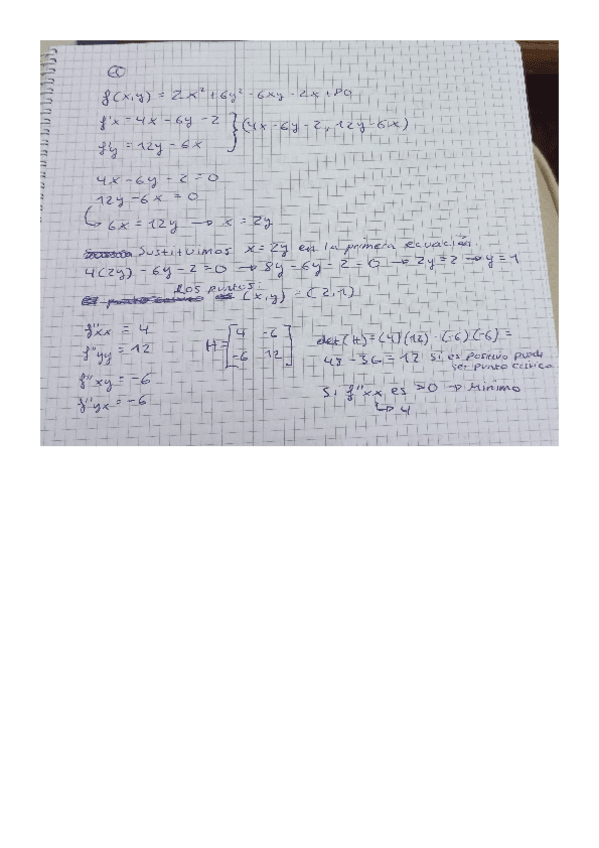 f(x,y) = 2x² + 6y² - 6xy - 2x + 89
f'x = 4x - 6y - 2 } (4x - 6y - 2, 12y - 6x)
f'y = 12y - 6x
4x - 6y - 2 = 0
12y - 6x = 0
↳ 6x = 12y → x = 2y
Sustituimos x = 2y en la primera ecuación.
4(2y) - 6y - 2 = 0 → 8y - 6y - 2 = 0 → 2y = 2 → y = 1
Los puntos:
(x,y) = (2,1)
f''xx = 4
f''yy = 12
f''xy = -6
f''yx = -6
H = [4 -6
-6 12]
det(H) = (4)(12) - (-6)(-6) =
48 - 36 = 12 Si es positivo puede
ser punto crítico
Si f''xx es >0 → Mínimo
↳ 4